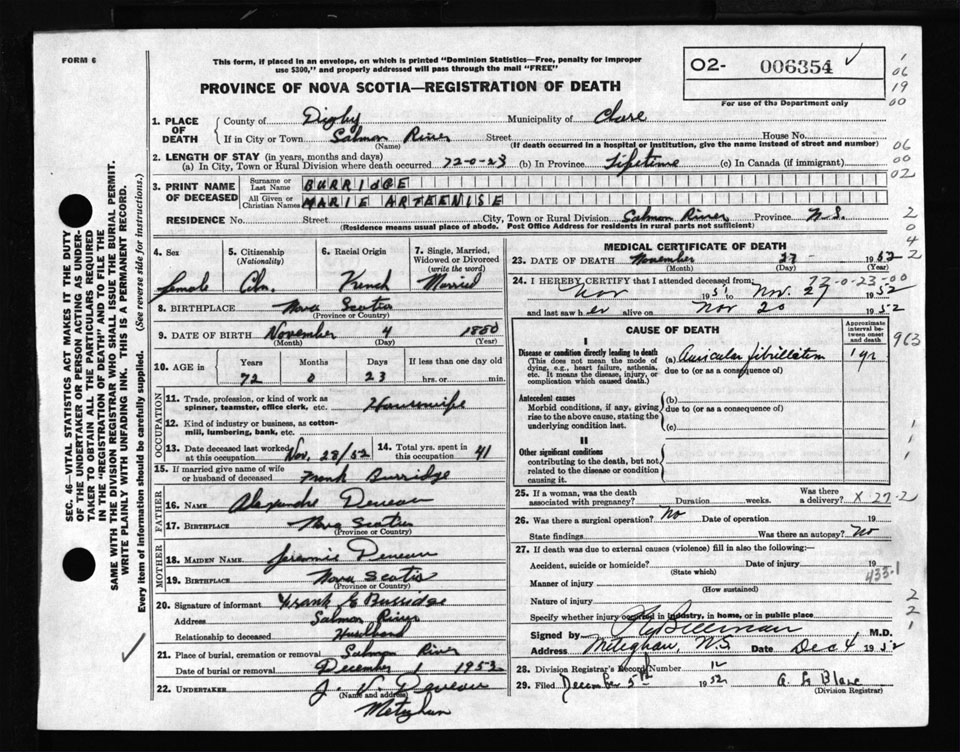 FORM 6
This form, if placed in an envelope, on which is printed "Dominion Statistics—Free, penalty for improper
use $300," and properly addressed will pass through the mail "FREE"
PROVINCE OF NOVA SCOTIA—REGISTRATION OF DEATH
O2- 006354
For use of the Department only
1. PLACE OF DEATH
County of Digby Municipality of Clare
If in City or Town Salmon River Street House No.
(Name) (If death occurred in a hospital or institution, give the name instead of street and number)
2. LENGTH OF STAY (in years, months and days)
(a) In City, Town or Rural Division where death occurred 72-0-23 (b) In Province Lifetime (c) In Canada (if immigrant)
3. PRINT NAME OF DECEASED
Surname or Last Name BURRIDGE
All Given or Christian Names MARIE ARTEENISE
RESIDENCE No. Street City, Town or Rural Division Salmon River Province N.S.
(Residence means usual place of abode. Post Office Address for residents in rural parts not sufficient)
4. Sex 5. Citizenship (Nationality) 6. Racial Origin 7. Single, Married, Widowed or Divorced (write the word)
female Cdn. French Married
8. BIRTHPLACE Nova Scotia
(Province or Country)
9. DATE OF BIRTH November 4 1880
(Month) (Day) (Year)
10. AGE in Years Months Days If less than one day old
72 0 23 hrs. or min.
OCCUPATION
11. Trade, profession, or kind of work as spinner, teamster, office clerk, etc. Housewife
12. Kind of industry or business, as cotton-mill, lumbering, bank, etc.
13. Date deceased last worked at this occupation Nov. 28/52 14. Total yrs. spent in this occupation 41
15. If married give name of wife or husband of deceased Frank Burridge
FATHER
16. NAME Alexandre Deveau
17. BIRTHPLACE Nova Scotia
(Province or Country)
MOTHER
18. MAIDEN NAME Deveau
19. BIRTHPLACE Nova Scotia
(Province or Country)
20. Signature of informant Frank G Burridge
Address Salmon River
Relationship to deceased Husband
21. Place of burial, cremation or removal Salmon River
Date of burial or removal December 1 1952
22. UNDERTAKER J. V. Deveau
(Name and address)
Meteghan
MEDICAL CERTIFICATE OF DEATH
23. DATE OF DEATH November 27 - 1952
(Month) (Day) (Year)
24. I HEREBY CERTIFY that I attended deceased from: 72-0-23-00
Nov 1951 to Nov. 27 1952
and last saw her alive on Nov 20 1952
CAUSE OF DEATH
Approximate interval between onset and death
I
Disease or condition directly leading to death
(This does not mean the mode of dying, e.g., heart failure, asthenia, etc. It means the disease, injury, or complication which caused death.)
(a) Auricular fibrillation 1 yr
due to (or as a consequence of)
Antecedent causes
Morbid conditions, if any, giving rise to the above cause, stating the underlying condition last.
(b)
due to (or as a consequence of)
(c)
II
Other significant conditions
contributing to the death, but not related to the disease or condition causing it.
25. If a woman, was the death associated with pregnancy? Duration weeks. Was there a delivery? X 27-2
26. Was there a surgical operation? No Date of operation 19
State findings Was there an autopsy? No
27. If death was due to external causes (violence) fill in also the following:—
Accident, suicide or homicide? Date of injury 19
(State which)
433.1
Manner of injury
(How sustained)
Nature of injury
Specify whether injury occurred in industry, in home, or in public place
Signed by M.D.
Address Meteghan, N.S. Date Dec 4 1952
28. Division Registrar's Record Number 12
29. Filed December 5th 1952 A. G Blanc
(Division Registrar)
SEC. 46—VITAL STATISTICS ACT MAKES IT THE DUTY
OF THE UNDERTAKER OR PERSON ACTING AS UNDER-
TAKER TO OBTAIN ALL THE PARTICULARS REQUIRED
IN THE "REGISTRATION OF DEATH" AND TO FILE THE
SAME WITH THE DIVISION REGISTRAR WHO SHALL ISSUE THE BURIAL PERMIT.
WRITE PLAINLY WITH UNFADING INK. THIS IS A PERMANENT RECORD.
Every item of information should be carefully supplied. (See reverse side for instructions.)
1
06
19
00
06
00
02
2
0
4
2
963
1
1
1
2
2
1